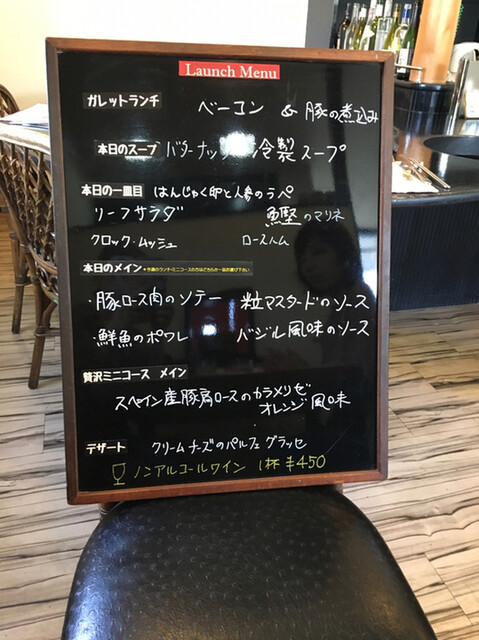 Launch Menu
ガレットランチ ベーコン & 豚の煮込み
本日のスープ バターナッツ 冷製スープ
本日の一皿目 はんじゅく卵と人参のラペ
リーフサラダ 鰹のマリネ
クロック・ムッシュ ロースハム
本日のメイン
・豚ロース肉のソテー 粒マスタードのソース
・鮮魚のポワレ バジル風味のソース
贅沢ミニコース メイン
スペイン産豚肩ロースのカラメリゼ
オレンジ風味
デザート クリームチーズのパルフェグラッセ
ノンアルコールワイン 1杯 ¥450